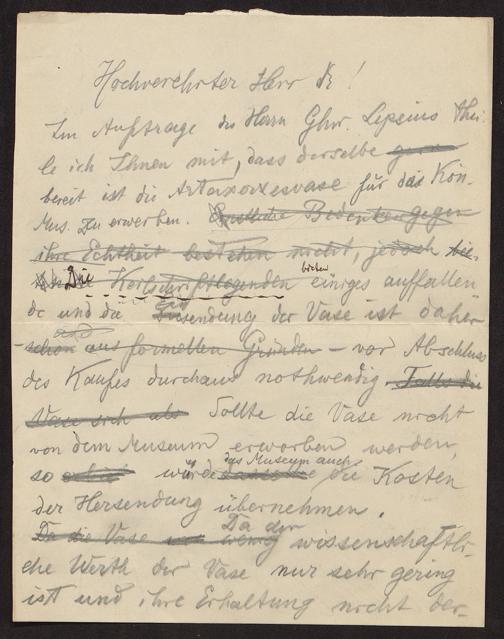 Hochverehrter Herr Dr!
Im Auftrage des Herrn Ghr. Lepsius thei-
le ich Ihnen mit, dass derselbe gern
bereit ist die Artaxerxesvase für das Kön.
Mus. zu erwerben. Bedenken gegen
ihre Echtheit bestehen nicht, jedoch
Die Keilschriftlegenden bieten einiges auffallen-
de und die Einsendung der Vase ist daher
schon aus formellen Gründen vor Abschluss
des Kaufes durchaus nothwendig Falls die
Vase sich als Sollte die Vase nicht
von dem Museum erworben werden,
so würde das Museum auch die Kosten
der Hersendung übernehmen.
Da die Vase wenig Da der wissenschaftli-
che Werth der Vase nur sehr gering
ist und ihre Erhaltung nicht der-